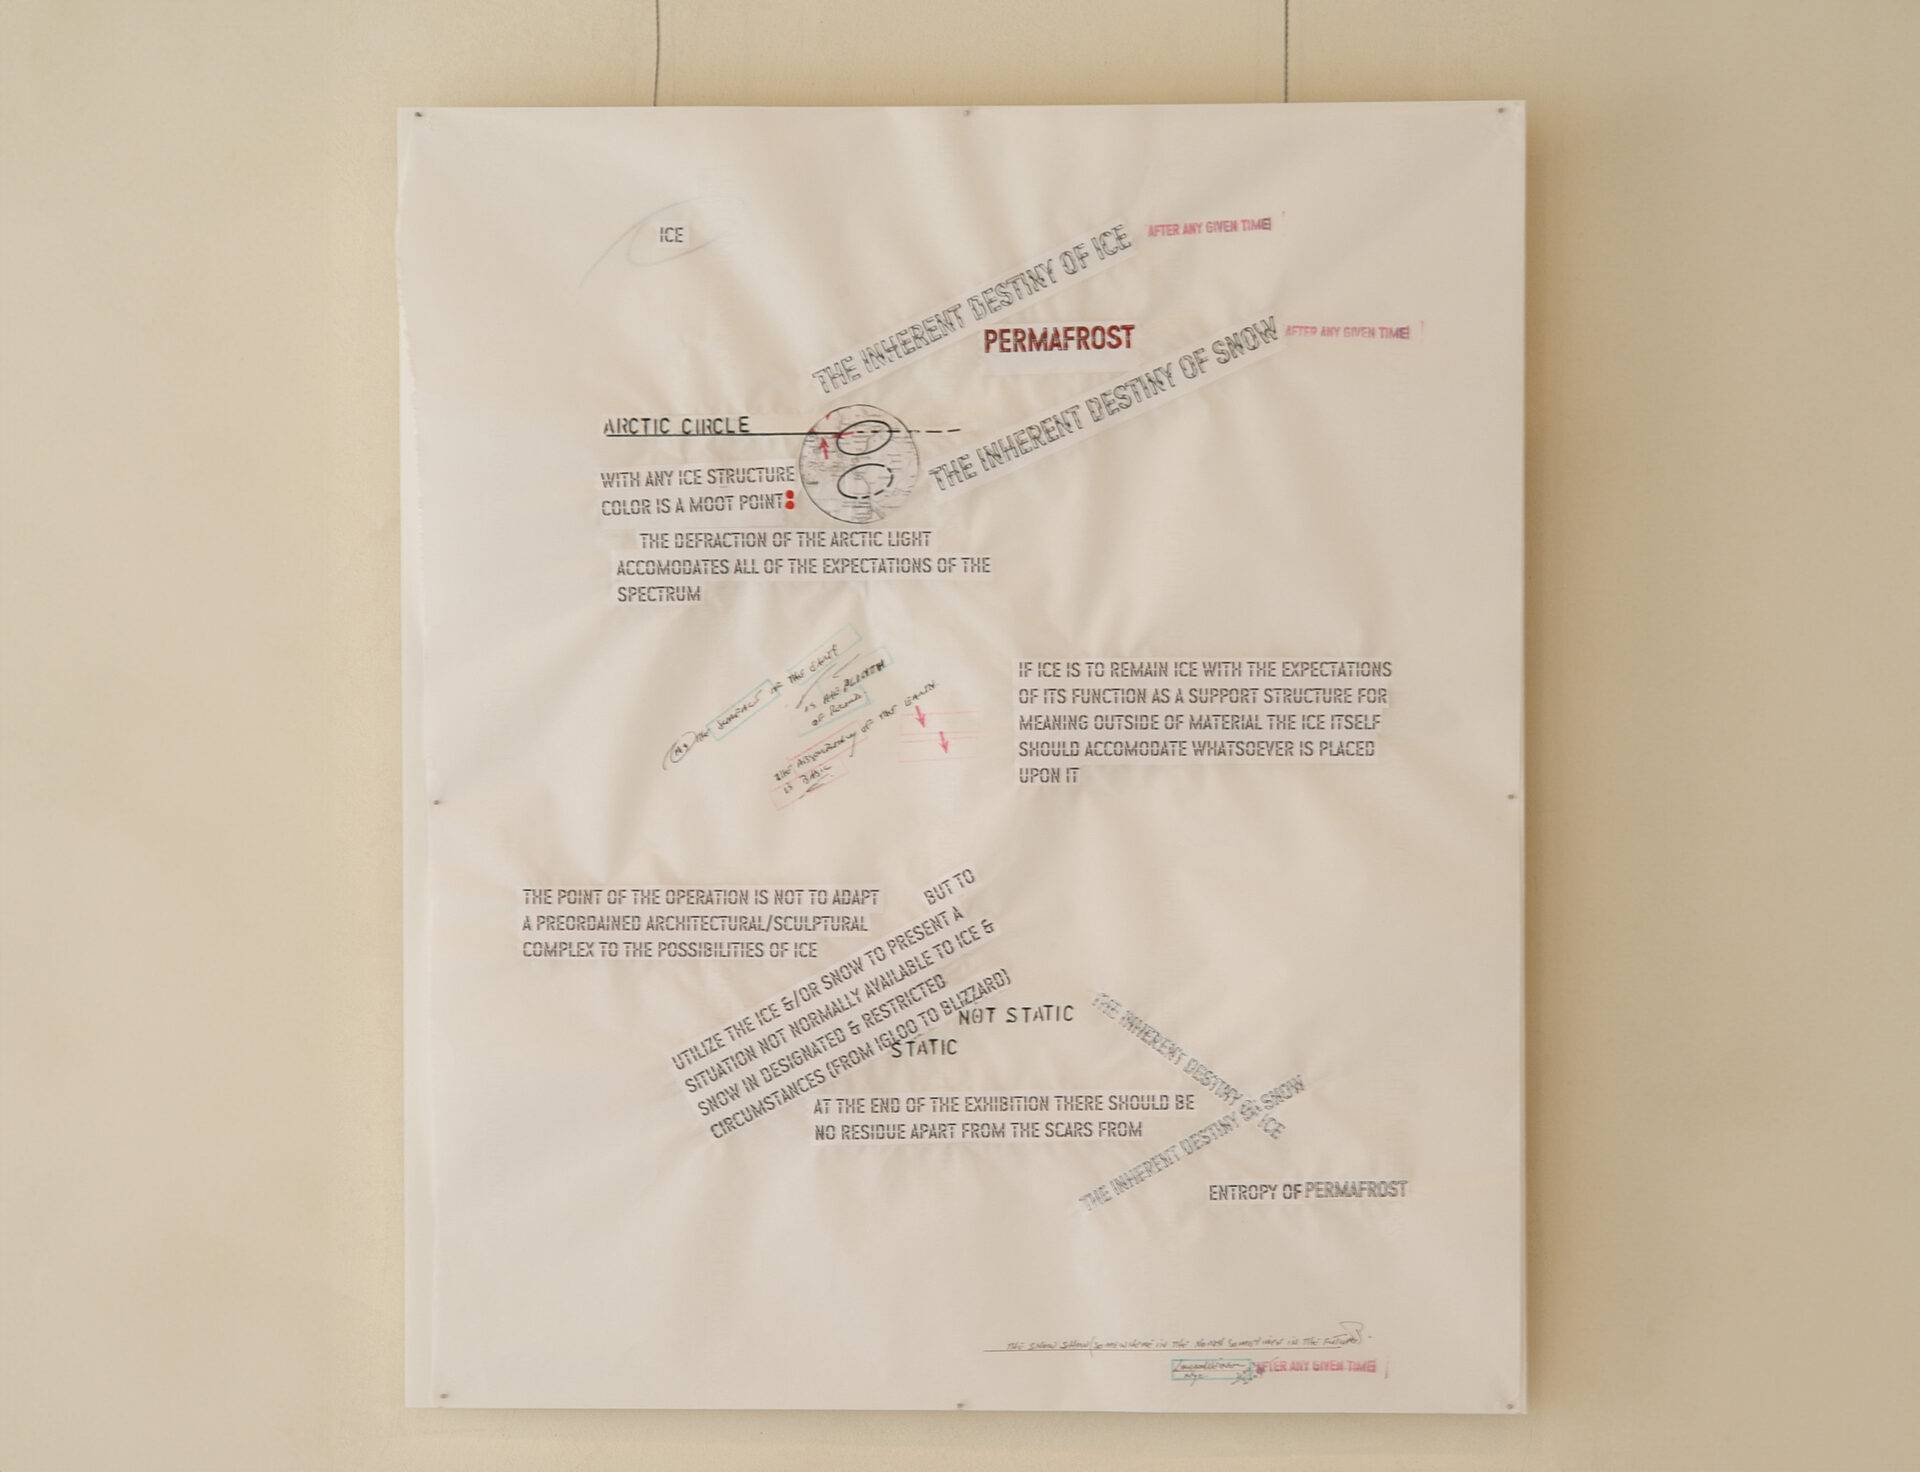 ICE
THE INHERENT DESTINY OF ICE
AFTER ANY GIVEN TIME
PERMAFROST
THE INHERENT DESTINY OF SNOW
AFTER ANY GIVEN TIME
ARCTIC CIRCLE
WITH ANY ICE STRUCTURE
COLOR IS A MOOT POINT:
THE DEFRACTION OF THE ARCTIC LIGHT
ACCOMODATES ALL OF THE EXPECTATIONS OF THE
SPECTRUM
AS THE SURFACE OF THE EARTH
IS THE
OF
THE OF THE EARTH
IS BASIC
IF ICE IS TO REMAIN ICE WITH THE EXPECTATIONS
OF ITS FUNCTION AS A SUPPORT STRUCTURE FOR
MEANING OUTSIDE OF MATERIAL THE ICE ITSELF
SHOULD ACCOMODATE WHATSOEVER IS PLACED
UPON IT
THE POINT OF THE OPERATION IS NOT TO ADAPT
A PREORDAINED ARCHITECTURAL/SCULPTURAL
COMPLEX TO THE POSSIBILITIES OF ICE
BUT TO
UTILIZE THE ICE &/OR SNOW TO PRESENT A
SITUATION NOT NORMALLY AVAILABLE TO ICE &
SNOW IN DESIGNATED & RESTRICTED
CIRCUMSTANCES (FROM IGLOO TO BLIZZARD)
NOT STATIC
STATIC
AT THE END OF THE EXHIBITION THERE SHOULD BE
NO RESIDUE APART FROM THE SCARS FROM
THE INHERENT DESTINY OF ICE
THE INHERENT DESTINY OF SNOW
ENTROPY OF PERMAFROST
THE SNOW SHOW/SOMEWHERE IN THE NORTH SOMETIMES IN THE FUTURE
AFTER ANY GIVEN TIME